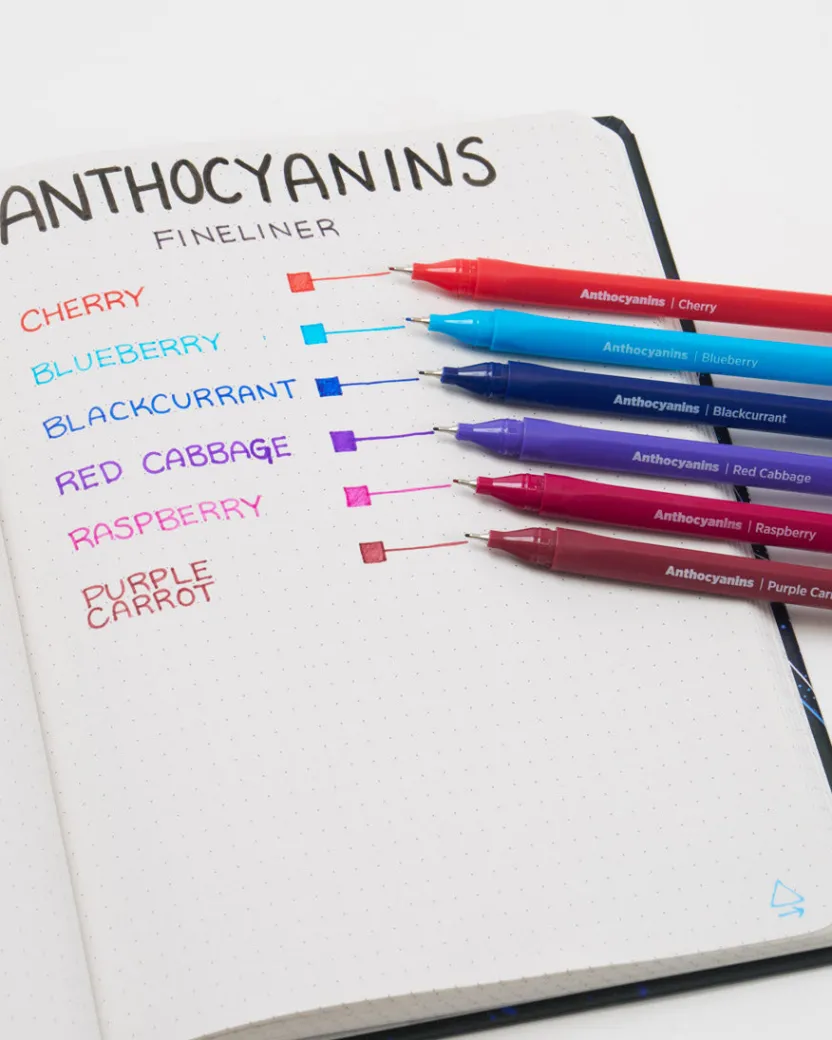 ANTHOCYANINS
FINELINER
CHERRY
BLUEBERRY
BLACKCURRANT
RED CABBAGE
RASPBERRY
PURPLE
CARROT
Anthocyanins | Cherry
Anthocyanins | Blueberry
Anthocyanins | Blackcurrant
Anthocyanins | Red Cabbage
Anthocyanins | Raspberry
Anthocyanins | Purple Carr